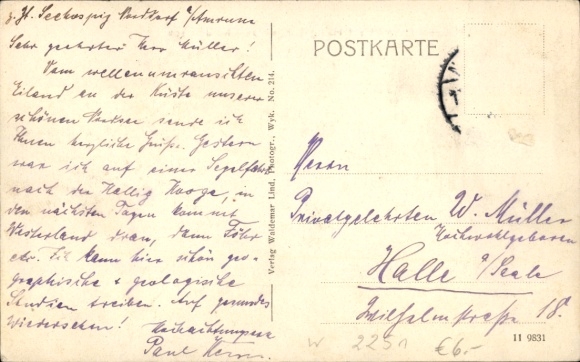 z. Zt. Seehospiz Norddorf a/Amrum
Sehr geehrter Herr Müller!
Vom wellenumrauschten
Eiland an der Küste unserer
schönen Nordsee sende ich
Ihnen herzliche Grüße. Gestern
war ich auf einer Segelfahrt
nach der Hallig Hooge, in
den nächsten Tagen kommt
Westerland dran, dann Föhr
etc. Ich kann hier schön geo-
graphische & geologische
Studien treiben. Auf gesundes
Wiedersehen!
Hochachtungsvoll
Paul
Verlag Waldemar Lind, Photogr., Wyk. No. 214.
POSTKARTE
Herrn
Privatgelehrten W. Müller
Hochwohlgeboren
Halle a/Saale
Wilhelmstraße 18.
€6.-
11 9831